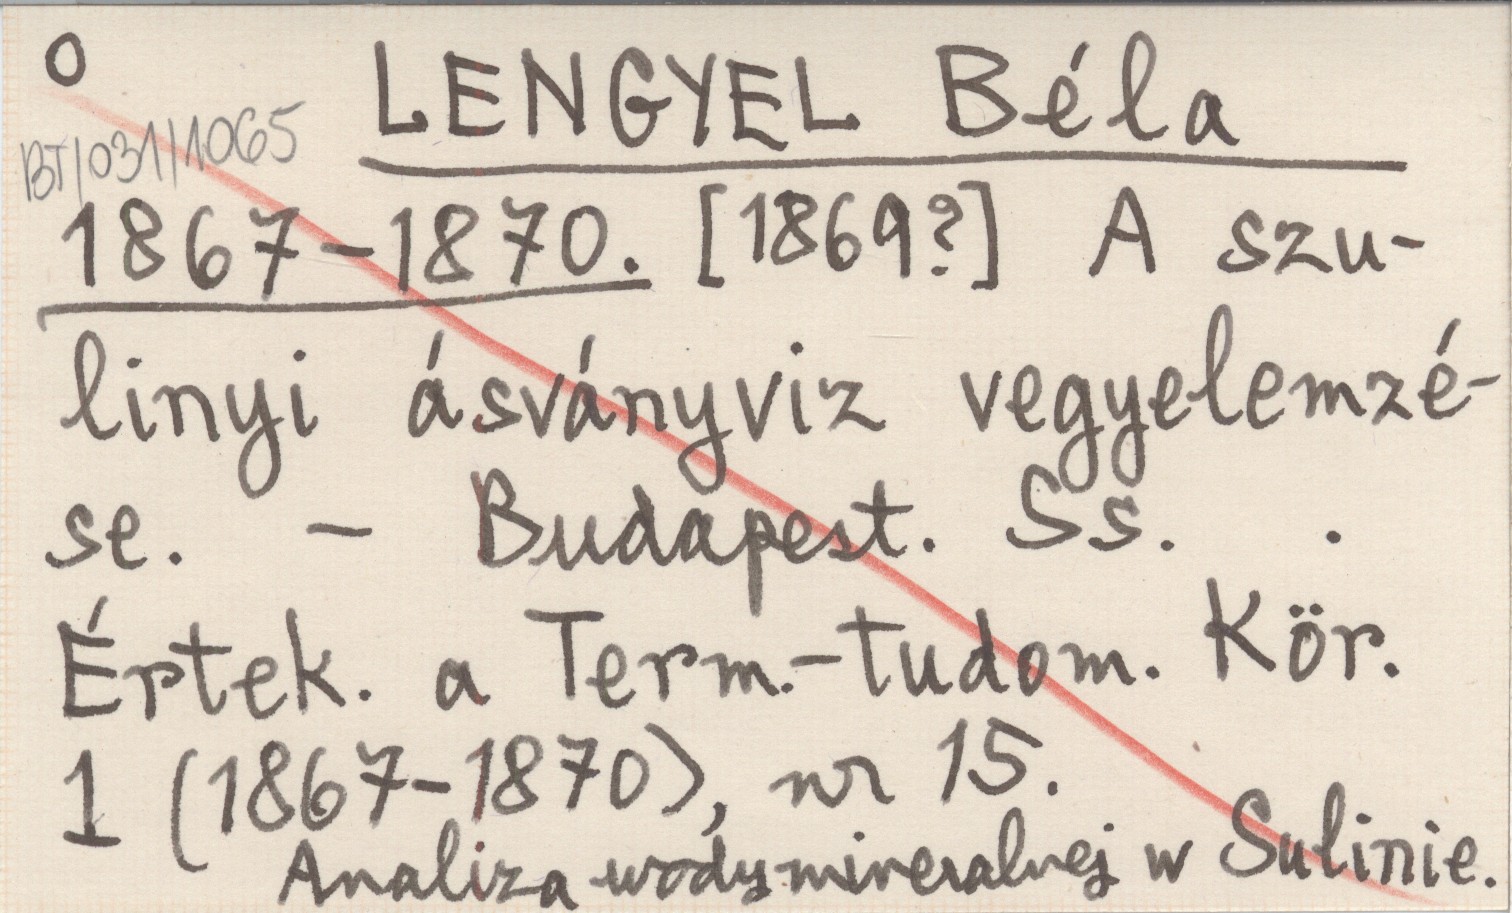 O
LENGYEL Béla
BT/031/1065
1867-1870. [1869?] A szu-
linyi ásványviz vegyelemzé-
se. - Budapest. Ss. .
Értek. a Term.-tudom. Kör.
1 (1867-1870), nr 15.
Analiza wody mineralnej w Sulinie.